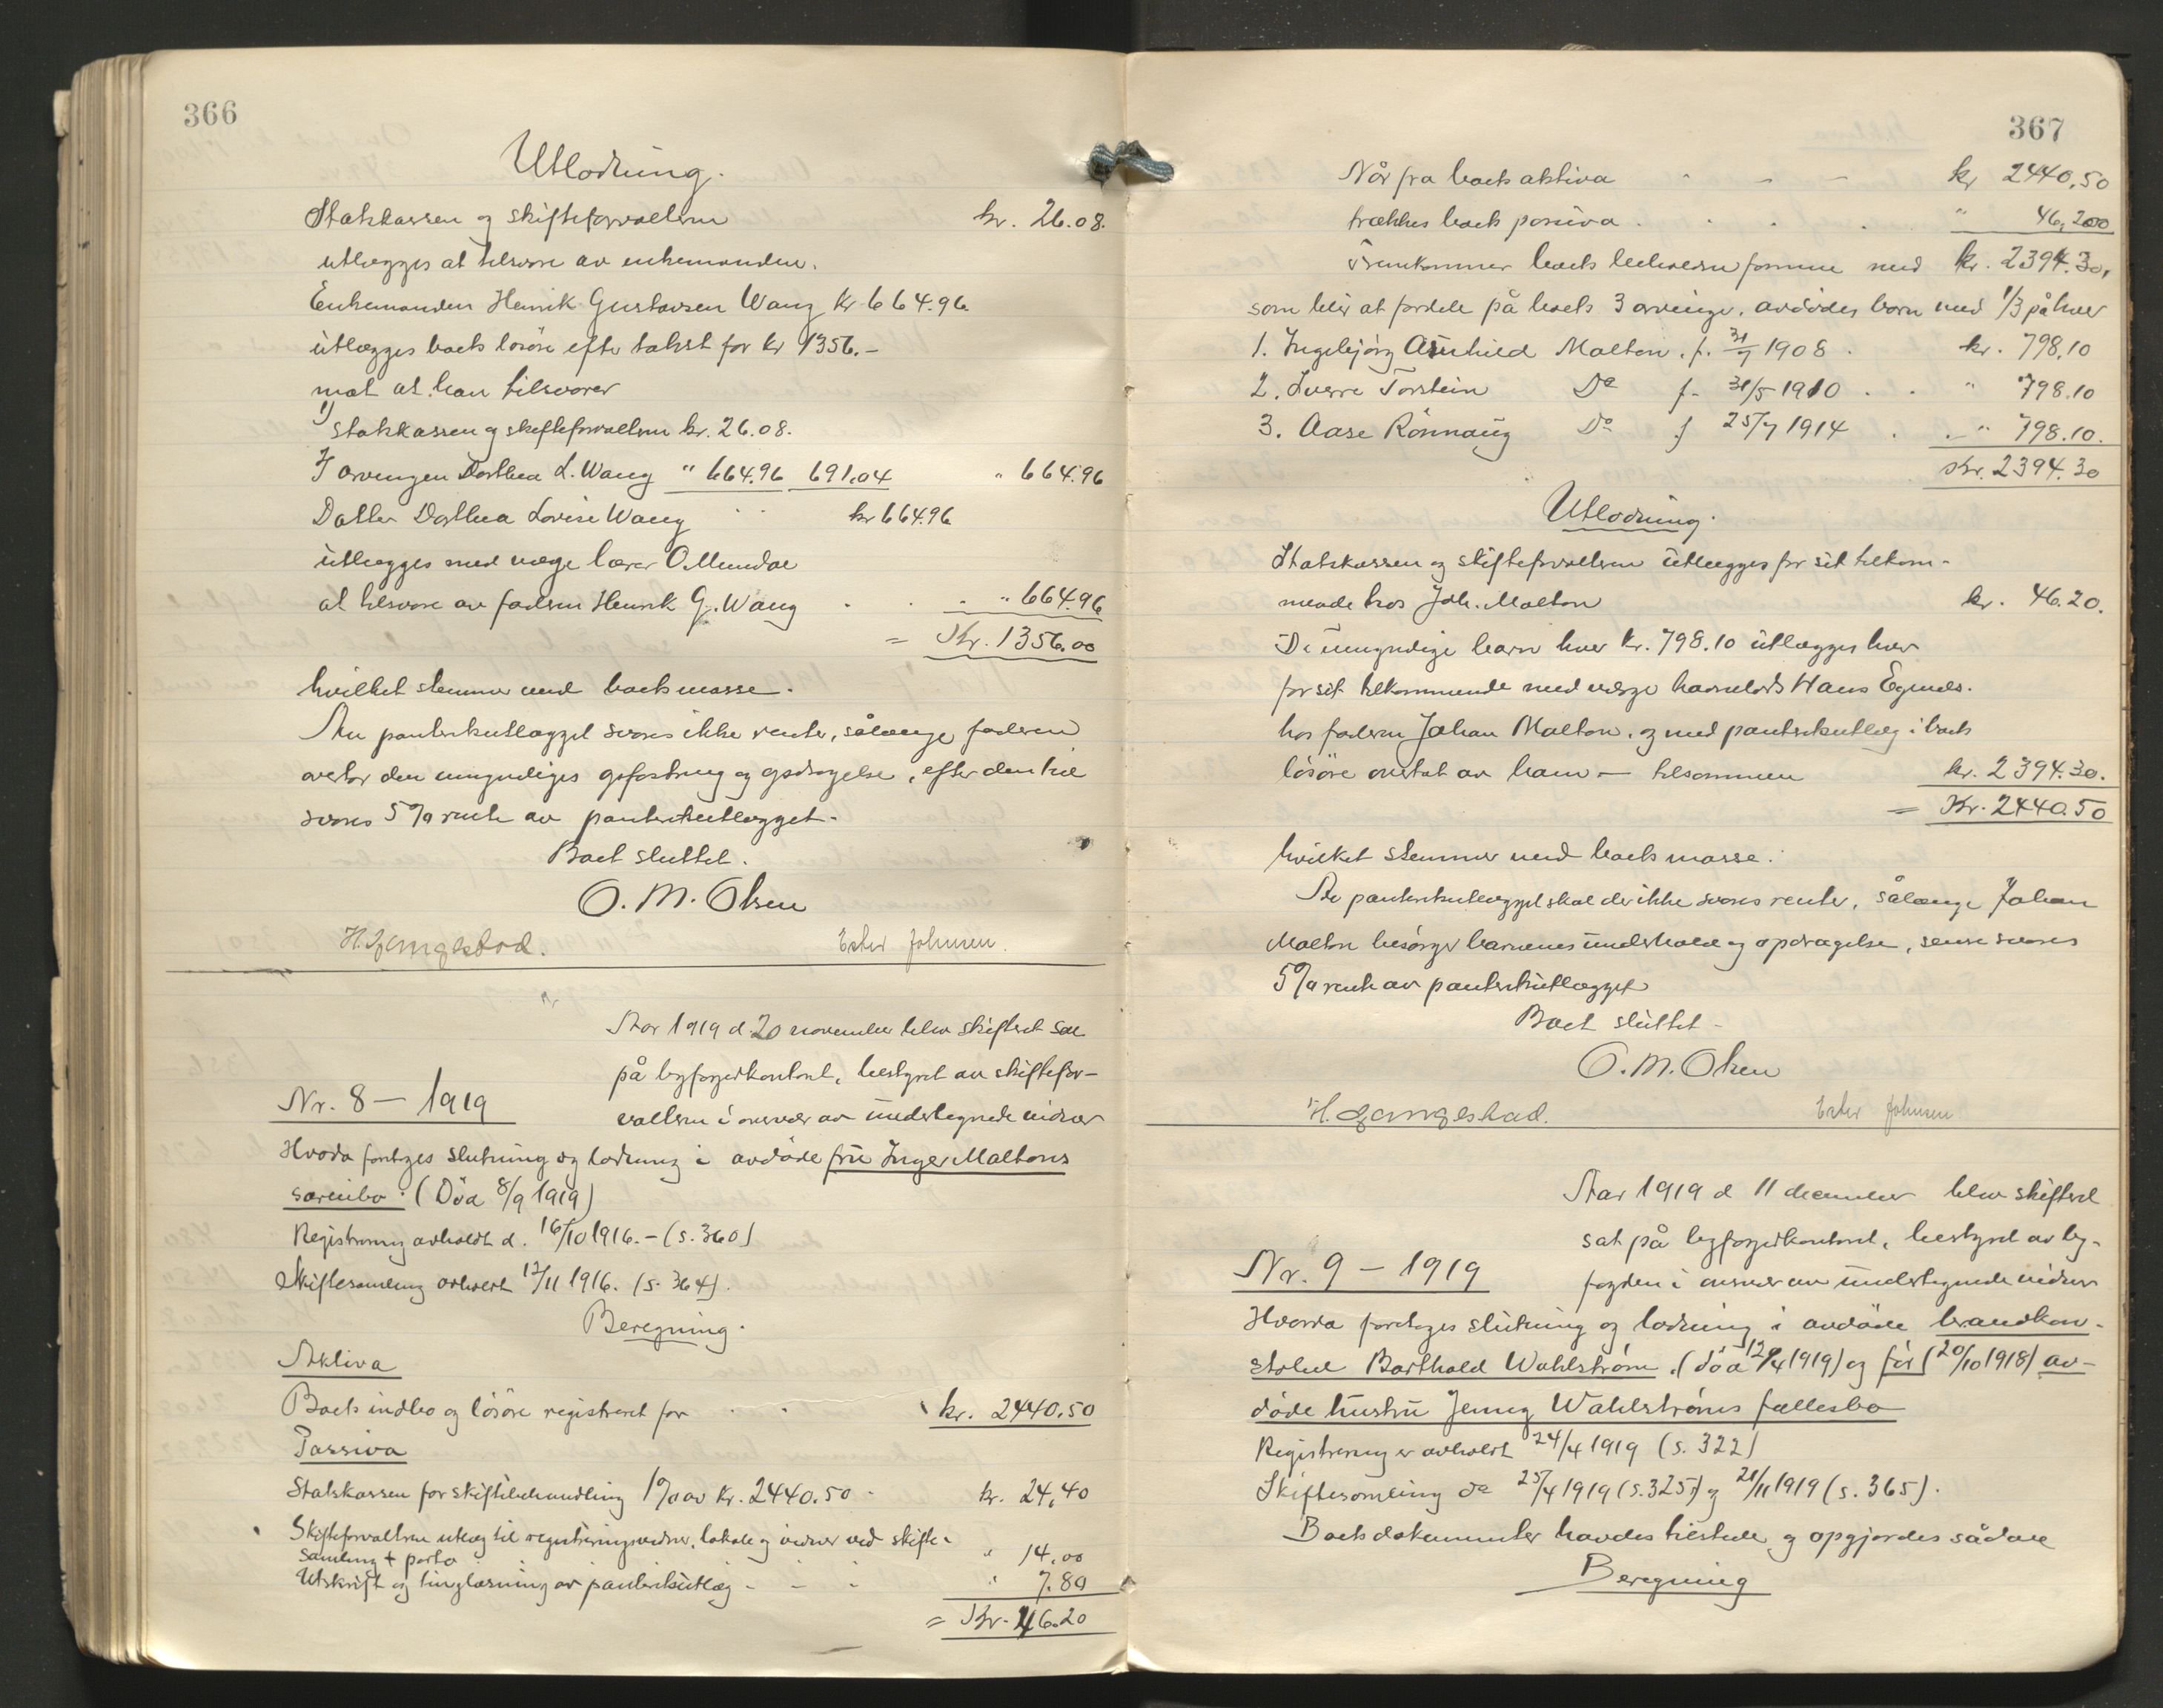 366
Utlodning.
Statskassen og skifteforvalteren kr. 26.08.
utlægges at tilsvare av enkemanden.
Enkemanden Henrik Gustavsen Wang kr 664.96
utlægges boets løsøre efter takst for kr 1356.-
mot at han tilsvarer
1) Statskassen og skifteforvalteren kr. 26.08.
2) arvingen Dorthea L. Wang " 664.96 691.04 " 664.96
Datter Dorthea Lovise Wang kr 664.96
utlægges med verge lærer O. Mundal
at tilsvare av faderen Henrik G. Wang . . . " 664.96
= Kr. 1356.00
hvilket stemmer med boets masse.
Av panteretutlægget svares ikke renter, sålænge faderen
overtar den umyndiges opfostring og opdragelse, efter den tid
svares 5 % rente av panteretutlægget.
Boet sluttet.
O. M. Olsen
Ester Johnsen.
Aar 1919 d. 20 november blev skifteret sat
på byfogedkontoret, bestyret av skiftefor-
Nr. 8 – 1919
valteren i overvær av undertegnede vidner
Hvorda foretoges slutning og lodning i avdøde fru Inger Maltons
særeiebo. (Død 8/9 1919)
Registrering avholdt d. 16/10 1916. – (s. 360)
Skiftesamling avholdt 17/11 1916. (s. 364).
Beregning.
Aktiva
Boets indbo og løsøre registreret for . . kr. 2440.50
Passiva
Statskassen for skiftebehandling 1 % av kr. 2440.50 - kr. 24,40
Skifteforvalteren utlæg til registreringsvidner, lokale og vidner ved skifte-
samling + porto " 14,00
Utskrift og tinglæsning av panteretsutlæg - - - " 7.80
= Kr. 46.20
367
Når fra boets aktiva - - - kr 2440.50
trækkes boets passiva . . . . " 46,20
fremkommer boets beholdne formue med kr. 2394.30,
som blir at fordele på boets 3 arvinger, avdødes barn med 1/3 på hver
1. Ingebjørg Malton . f. 31/7 1908 . kr. 798.10
2. Sverre Torstein Do f. 31/5 1910 . . " 798.10
3. Aase Rønnaug Do f 25/7 1914 . . " 798.10.
Kr. 2394.30
Utlodning.
Statskassen og skifteforvalteren utlægges for sit tilkom-
mende hos Joh. Malton kr. 46.20.
De umyndige barn hver kr. 798.10 utlægges hver
for sit tilkommende med verge Hans
hos faderen Johan Malton, og med panteretutlæg i boets
løsøre overtat av ham – tilsammen kr. 2394.30.
= Kr. 2440.50
hvilket stemmer med boets masse.
Av panteretutlægget skal der ikke svares renter, sålænge Johan
Malton besørger barnenes underhold og opdragelse, senere svares
5 % rente av panteretutlægget
Boet sluttet -
O. M. Olsen
Ester Johnsen
Aar 1919 d 11 december blev skifteret
sat på byfogedkontoret, bestyret av by-
Nr. 9 – 1919
fogden i overvær av undertegnede vidner
Hvorda foretoges slutning og lodning i avdøde brandkon-
stabel Barthold Wahlstrøm . (død 12/4 1919) og før (20/10 1918) av-
døde hustru Jenny Wahlstrøms fællesbo
Registrering er avholdt 24/4 1919 (s. 322)
Skiftesamling do 25/4 1919 (s. 325) og 21/11 1919 (s. 365).
Boets dokumenter havdes tilstede og opgjordes sådan
Beregning